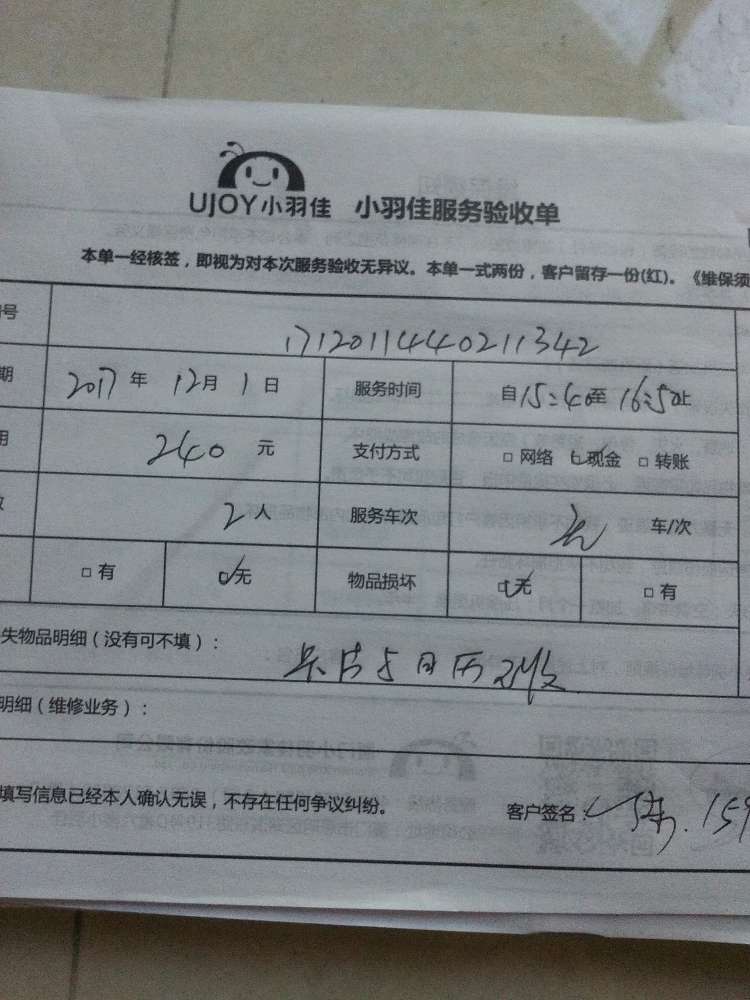 UJOY小羽佳 小羽佳服务验收单
本单一经核签，即视为对本次服务验收无异议。本单一式两份，客户留存一份(红)。《维保须
号 17120114440211342
期 2017 年 12 月 1 日 服务时间 自15:40至 16:50止
用 240 元 支付方式 □ 网络 ☑现金 □ 转账
数 2 人 服务车次 车/次
□ 有 ☑无 物品损坏 ☑无 □ 有
失物品明细（没有可不填）： 卡片与日历已收
明细（维修业务）：
填写信息已经本人确认无误，不存在任何争议纠纷。 客户签名： 159